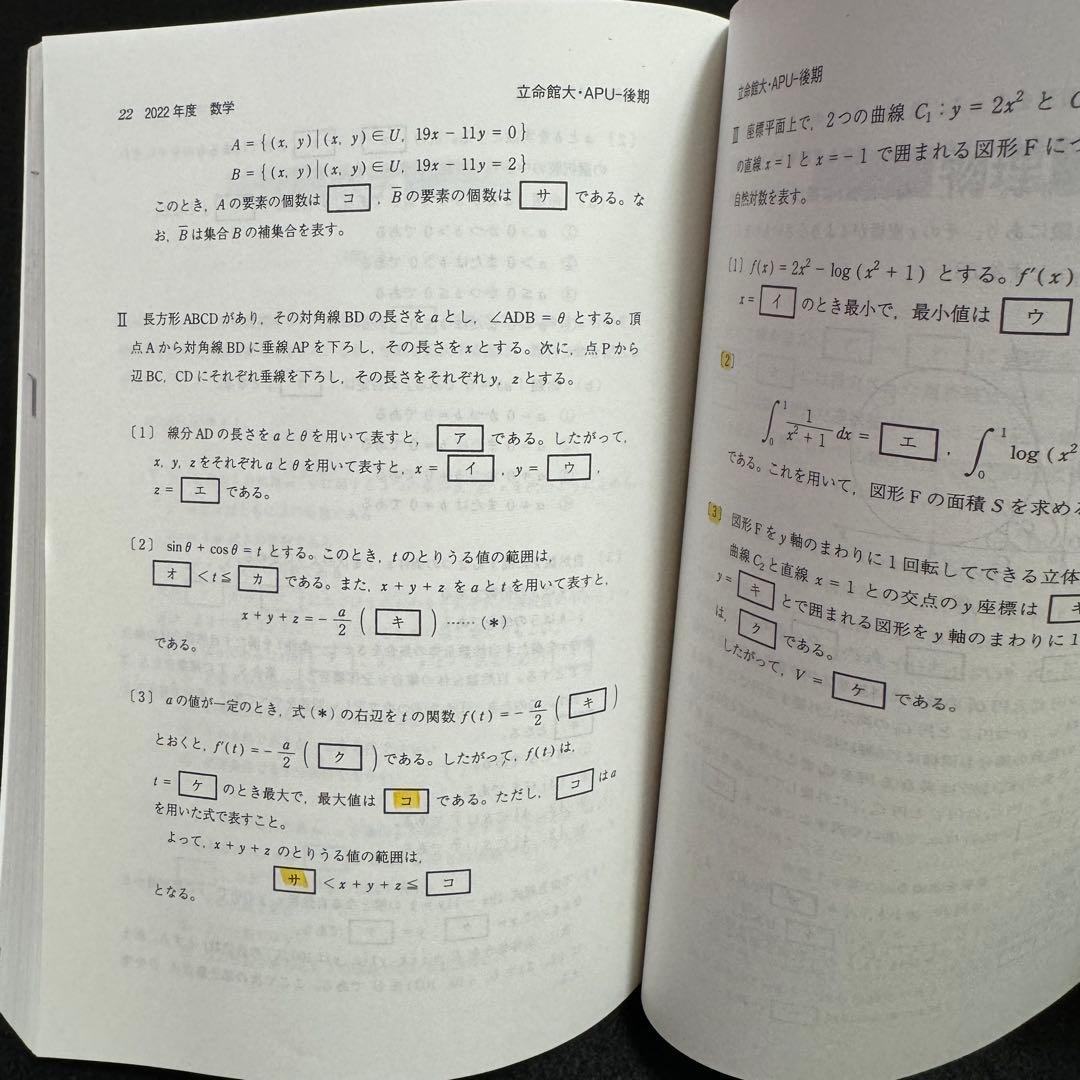 22 2022年度 数学
立命館大・APU-後期
A = {(x, y)|(x, y)∈U, 19x − 11y = 0}
B = {(x, y)|(x, y)∈U, 19x − 11y = 2}
このとき，Aの要素の個数は コ ，B̅の要素の個数は サ である。な
お，B̅は集合Bの補集合を表す。
Ⅱ 長方形ABCDがあり，その対角線BDの長さをaとし，∠ADB = θとする。頂
点Aから対角線BDに垂線APを下ろし，その長さをxとする。次に，点Pから
辺BC，CDにそれぞれ垂線を下ろし，その長さをそれぞれy，zとする。
〔1〕 線分ADの長さをaとθを用いて表すと， ア である。したがって，
x，y，zをそれぞれaとθを用いて表すと，x = イ ，y = ウ ，
z = エ である。
〔2〕 sinθ + cosθ = t とする。このとき，tのとりうる値の範囲は，
オ < t ≦ カ である。また，x + y + z をaとtを用いて表すと，
x + y + z = − a/2 ( キ ) ……(＊)
である。
〔3〕 aの値が一定のとき，式(＊)の右辺をtの関数 f(t) = − a/2 ( キ )
とおくと，f′(t) = − a/2 ( ク ) である。したがって，f(t)は，
t = ケ のとき最大で，最大値は コ である。ただし， コ はa
を用いた式で表すこと。
よって，x + y + z のとりうる値の範囲は，
サ < x + y + z ≦ コ
となる。
立命館大・APU-後期
Ⅲ 座標平面上で，2つの曲線 C₁ : y = 2x² と
の直線 x = 1 と x = −1 で囲まれる図形Fに
自然対数を表す。
〔1〕 f(x) = 2x² − log(x² + 1) とする。f′(x)
x = イ のとき最小で，最小値は ウ
〔2〕
∫₀¹ 1/(x² + 1) dx = エ ，∫₀¹ log(x²
である。これを用いて，図形Fの面積Sを求め
〔3〕 図形Fをy軸のまわりに1回転してできる立体
曲線C₂と直線 x = 1 との交点のy座標は キ
y = キ とで囲まれる図形をy軸のまわりに1
は， ク である。
したがって，V = ケ である。